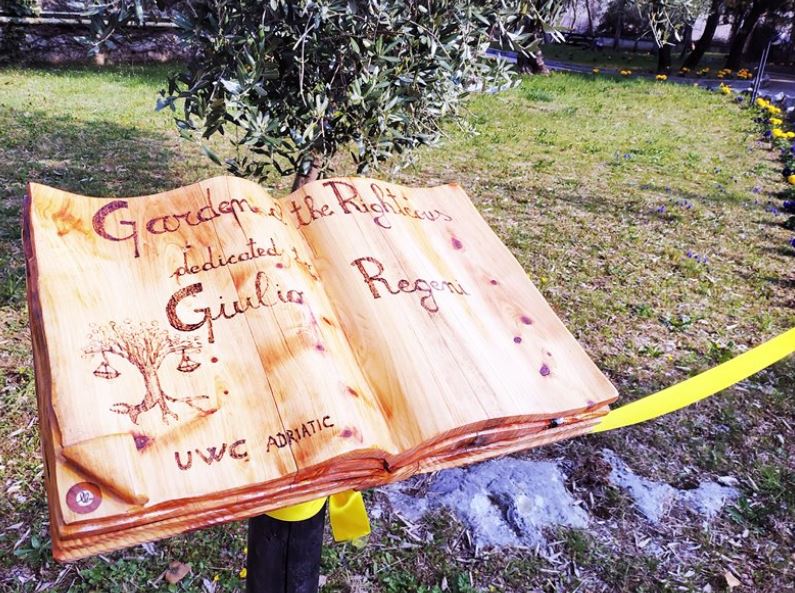 Garden of the Righteous
dedicated to
Giulio Regeni
UWC ADRIATIC